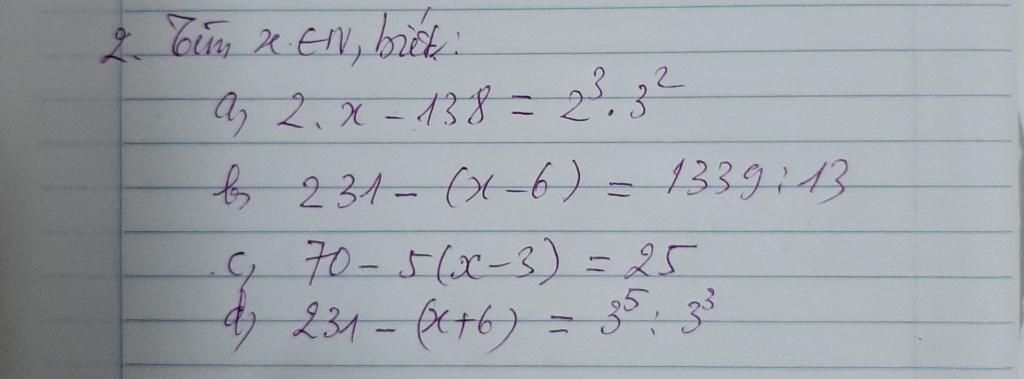 2. Tìm x ∈ N, biết:
a, 2.x - 138 = 2³.3²
b, 231 - (x-6) = 1339:13
c, 70 - 5(x-3) = 25
d, 231 - (x+6) = 3⁵:3³